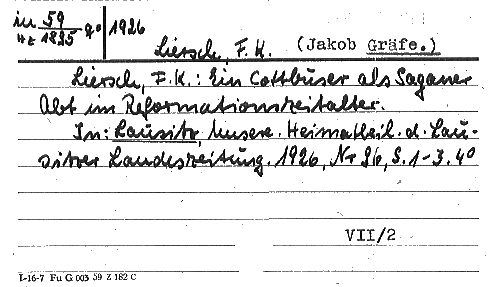 in 59/HZ 1825 4° | 1926
Liersch, F. K. (Jakob Gräfe.)
Liersch, F. K.: Ein Cottbuser als Saganer
Abt im Reformationszeitalter.
In: Lausitz, Unsere. Heimatbeil. d. Lau-
sitzer Landeszeitung. 1926, Nr 26, S. 1-3. 4°
VII/2
L-16-7 Fu G 003 59 Z 182 C